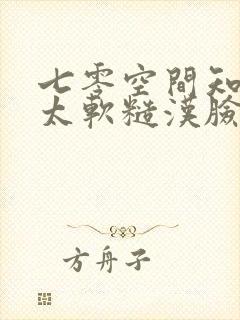 七零空間知
太軟糙漢臉
方舟子